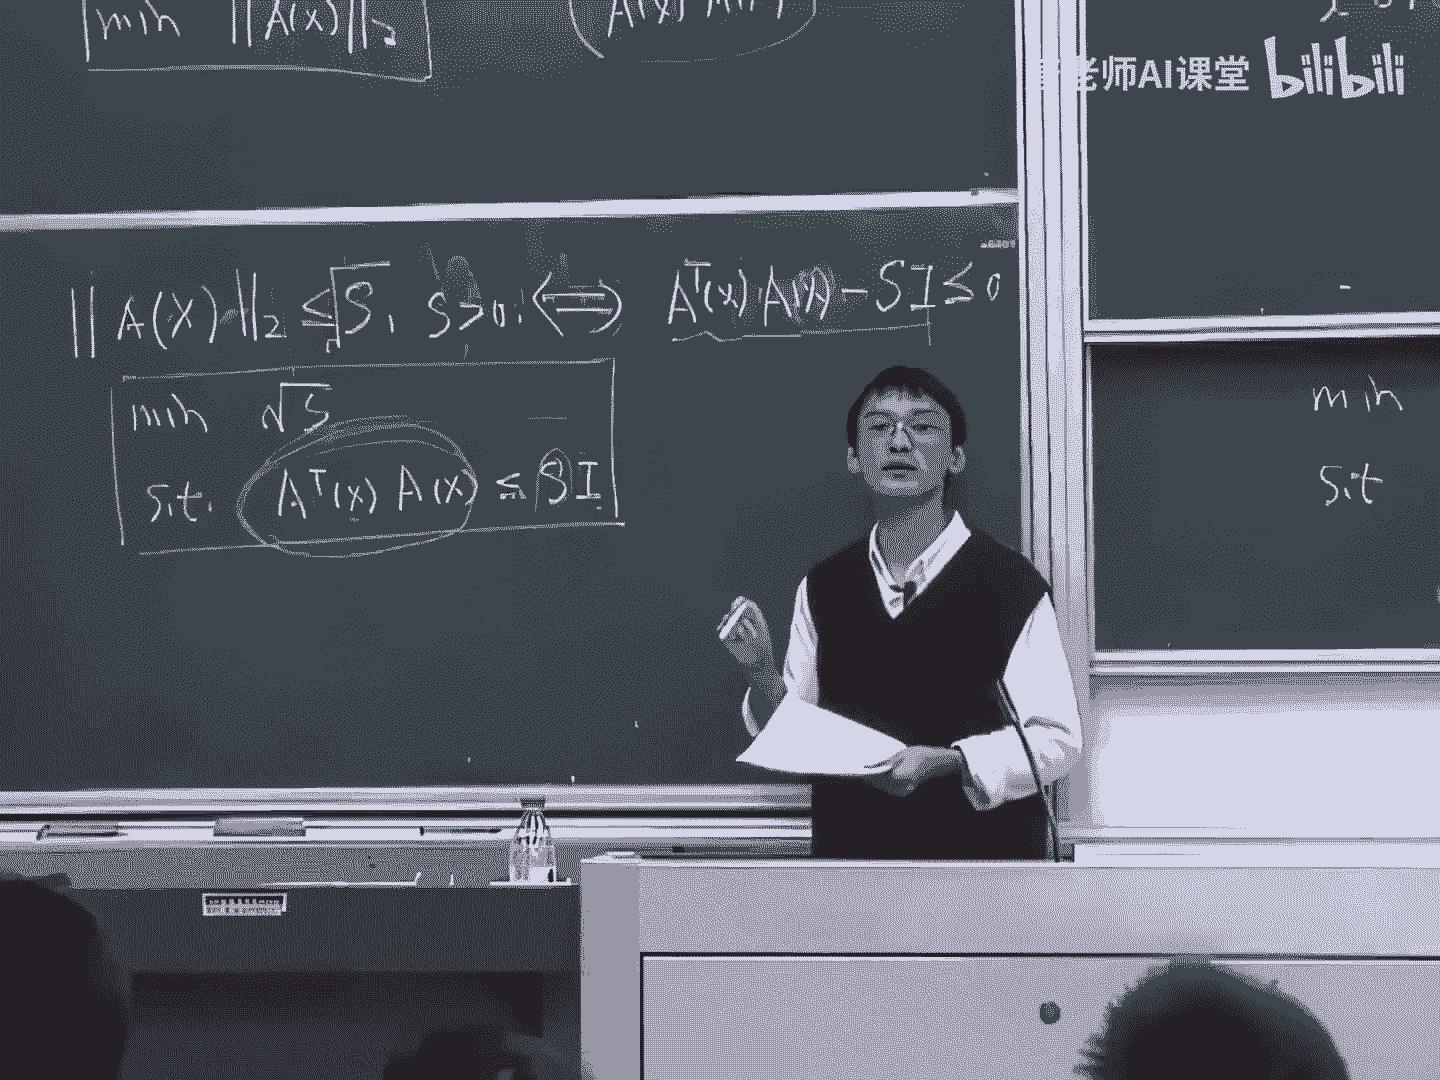 min ||A(x)||₂
老师AI课堂 bilibili
||A(x)||₂ ≤ √S, S>0. ⟺ Aᵀ(x) A(x) − SI ≤ 0
min √S
s.t. Aᵀ(x) A(x) ≤ SI
min
s.t